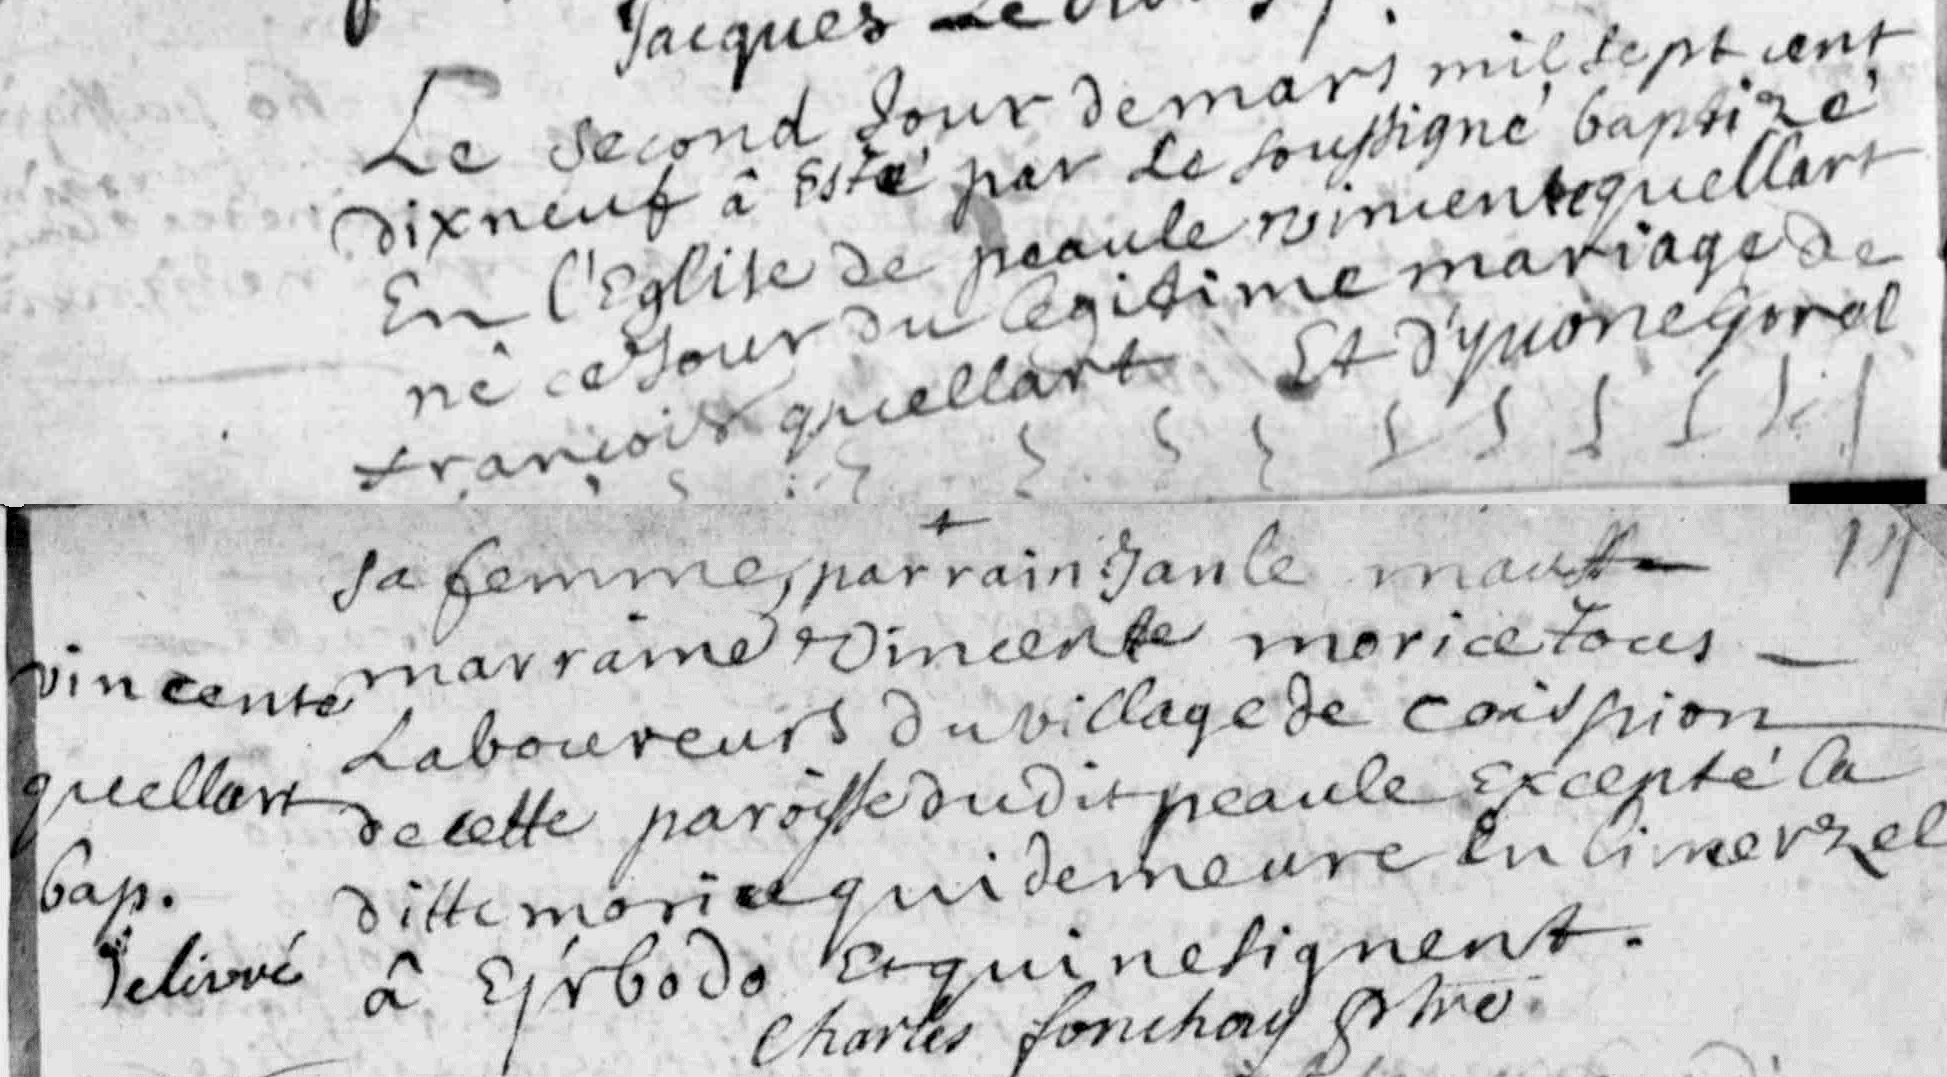 Jacques Le
Le second Jour de mars mil sept cent
dixneuf â Esté par Le soussigné baptizé
En l'Eglise de peaule vincente quellart
né ce Jour du legitime mariage de
francois quellart Et d'yuone Gorel
sa femme, parrain Jan le
marraine vincente morice tous
Laboureurs du village de coispion
de cette paroisse dudit peaule Excepté la
ditte morice qui demeure En limerzel
â Kjrbodo Et qui ne signent.
charles
vincente
quellart
bap.
delivré